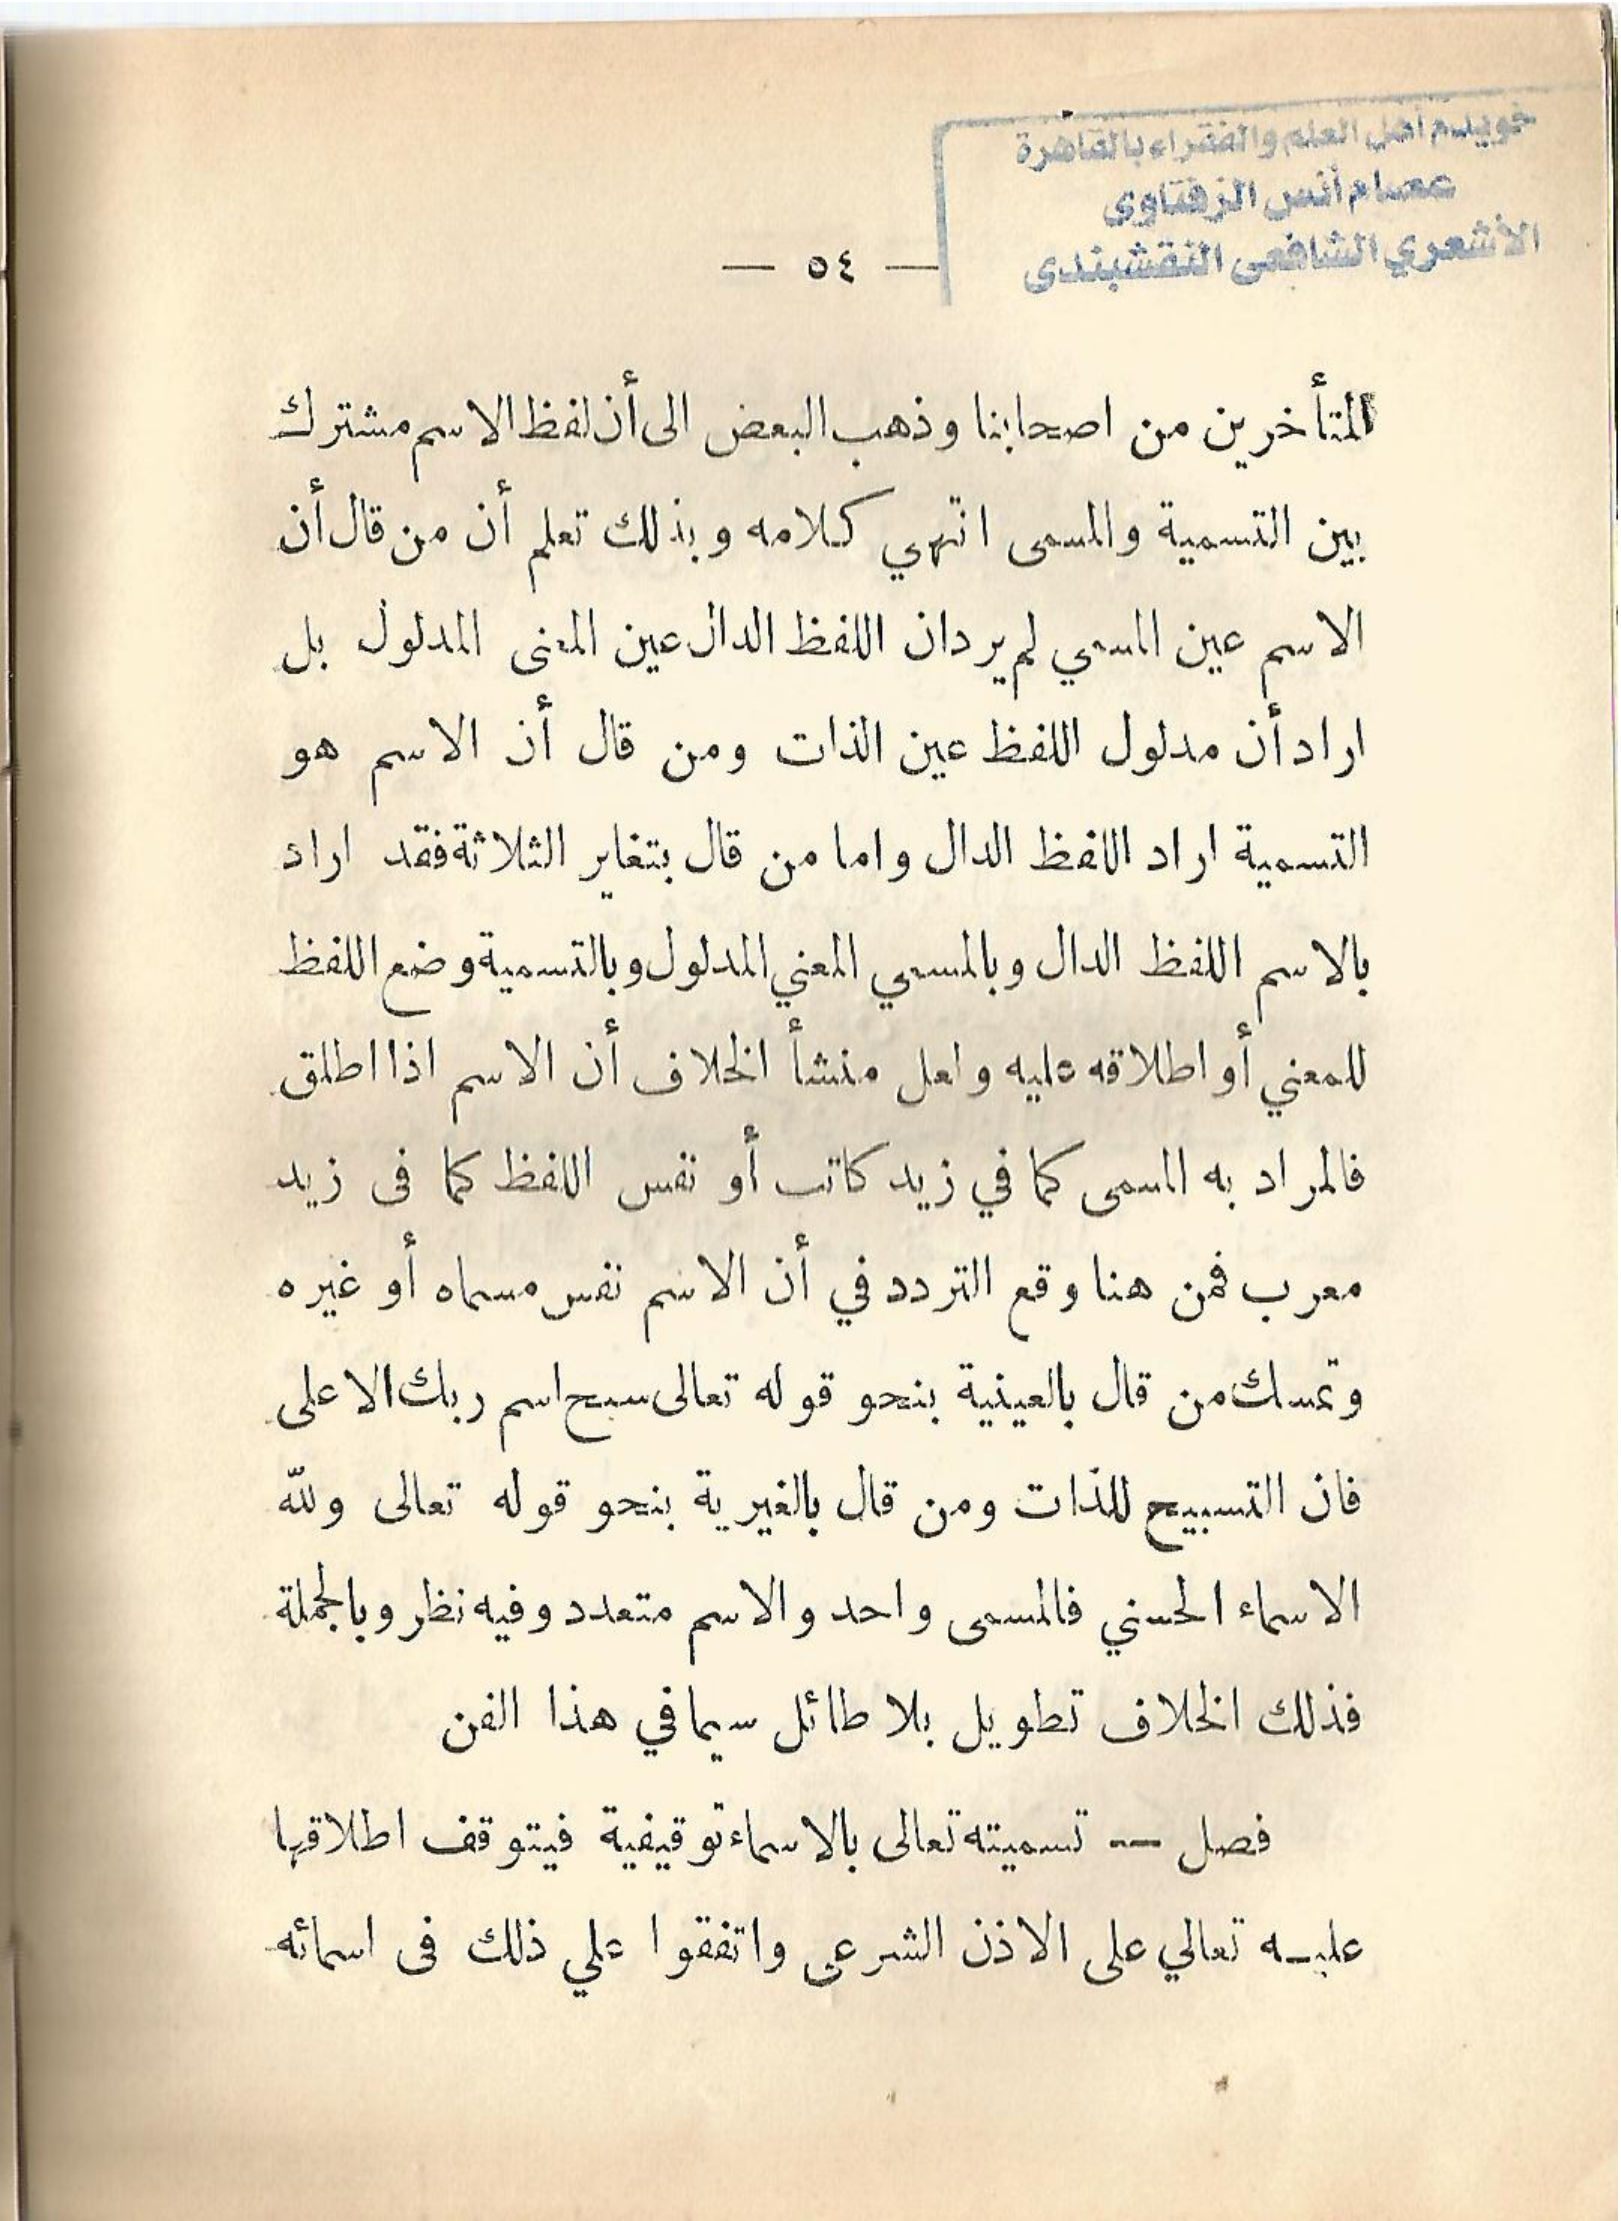 خويدم أهل العلم والفقراء بالقاهرة
عصام أنس الزفتاوى
الأشعري الشافعى النقشبندى
— ٥٤ —
المتأخرين من اصحابنا وذهب البعض الى أن لفظ الاسم مشترك
بين التسمية والمسمى انتهي كلامه وبذلك تعلم أن من قال أن
الاسم عين المسمي لم يرد ان اللفظ الدال عين المعنى المدلول بل
اراد أن مدلول اللفظ عين الذات ومن قال أن الاسم هو
التسمية اراد اللفظ الدال واما من قال بتغاير الثلاثة فقد اراد
بالاسم اللفظ الدال وبالمسمي المعني المدلول وبالتسمية وضع اللفظ
للمعني أو اطلاقه عليه ولعل منشأ الخلاف أن الاسم اذا اطلق
فالمراد به المسمى كما في زيد كاتب أو نفس اللفظ كما فى زيد
معرب فمن هنا وقع التردد في أن الاسم نفس مسماه أو غيره
وتمسك من قال بالعينية بنحو قوله تعالى سبح اسم ربك الاعلى
فان التسبيح للذات ومن قال بالغيرية بنحو قوله تعالى ولله
الاسماء الحسني فالمسمى واحد والاسم متعدد وفيه نظر وبالجملة
فذلك الخلاف تطويل بلا طائل سيما في هذا الفن
فصل — تسميته تعالى بالاسماء توقيفية فيتوقف اطلاقها
عليه تعالي على الاذن الشرعى واتفقوا علي ذلك فى اسمائه